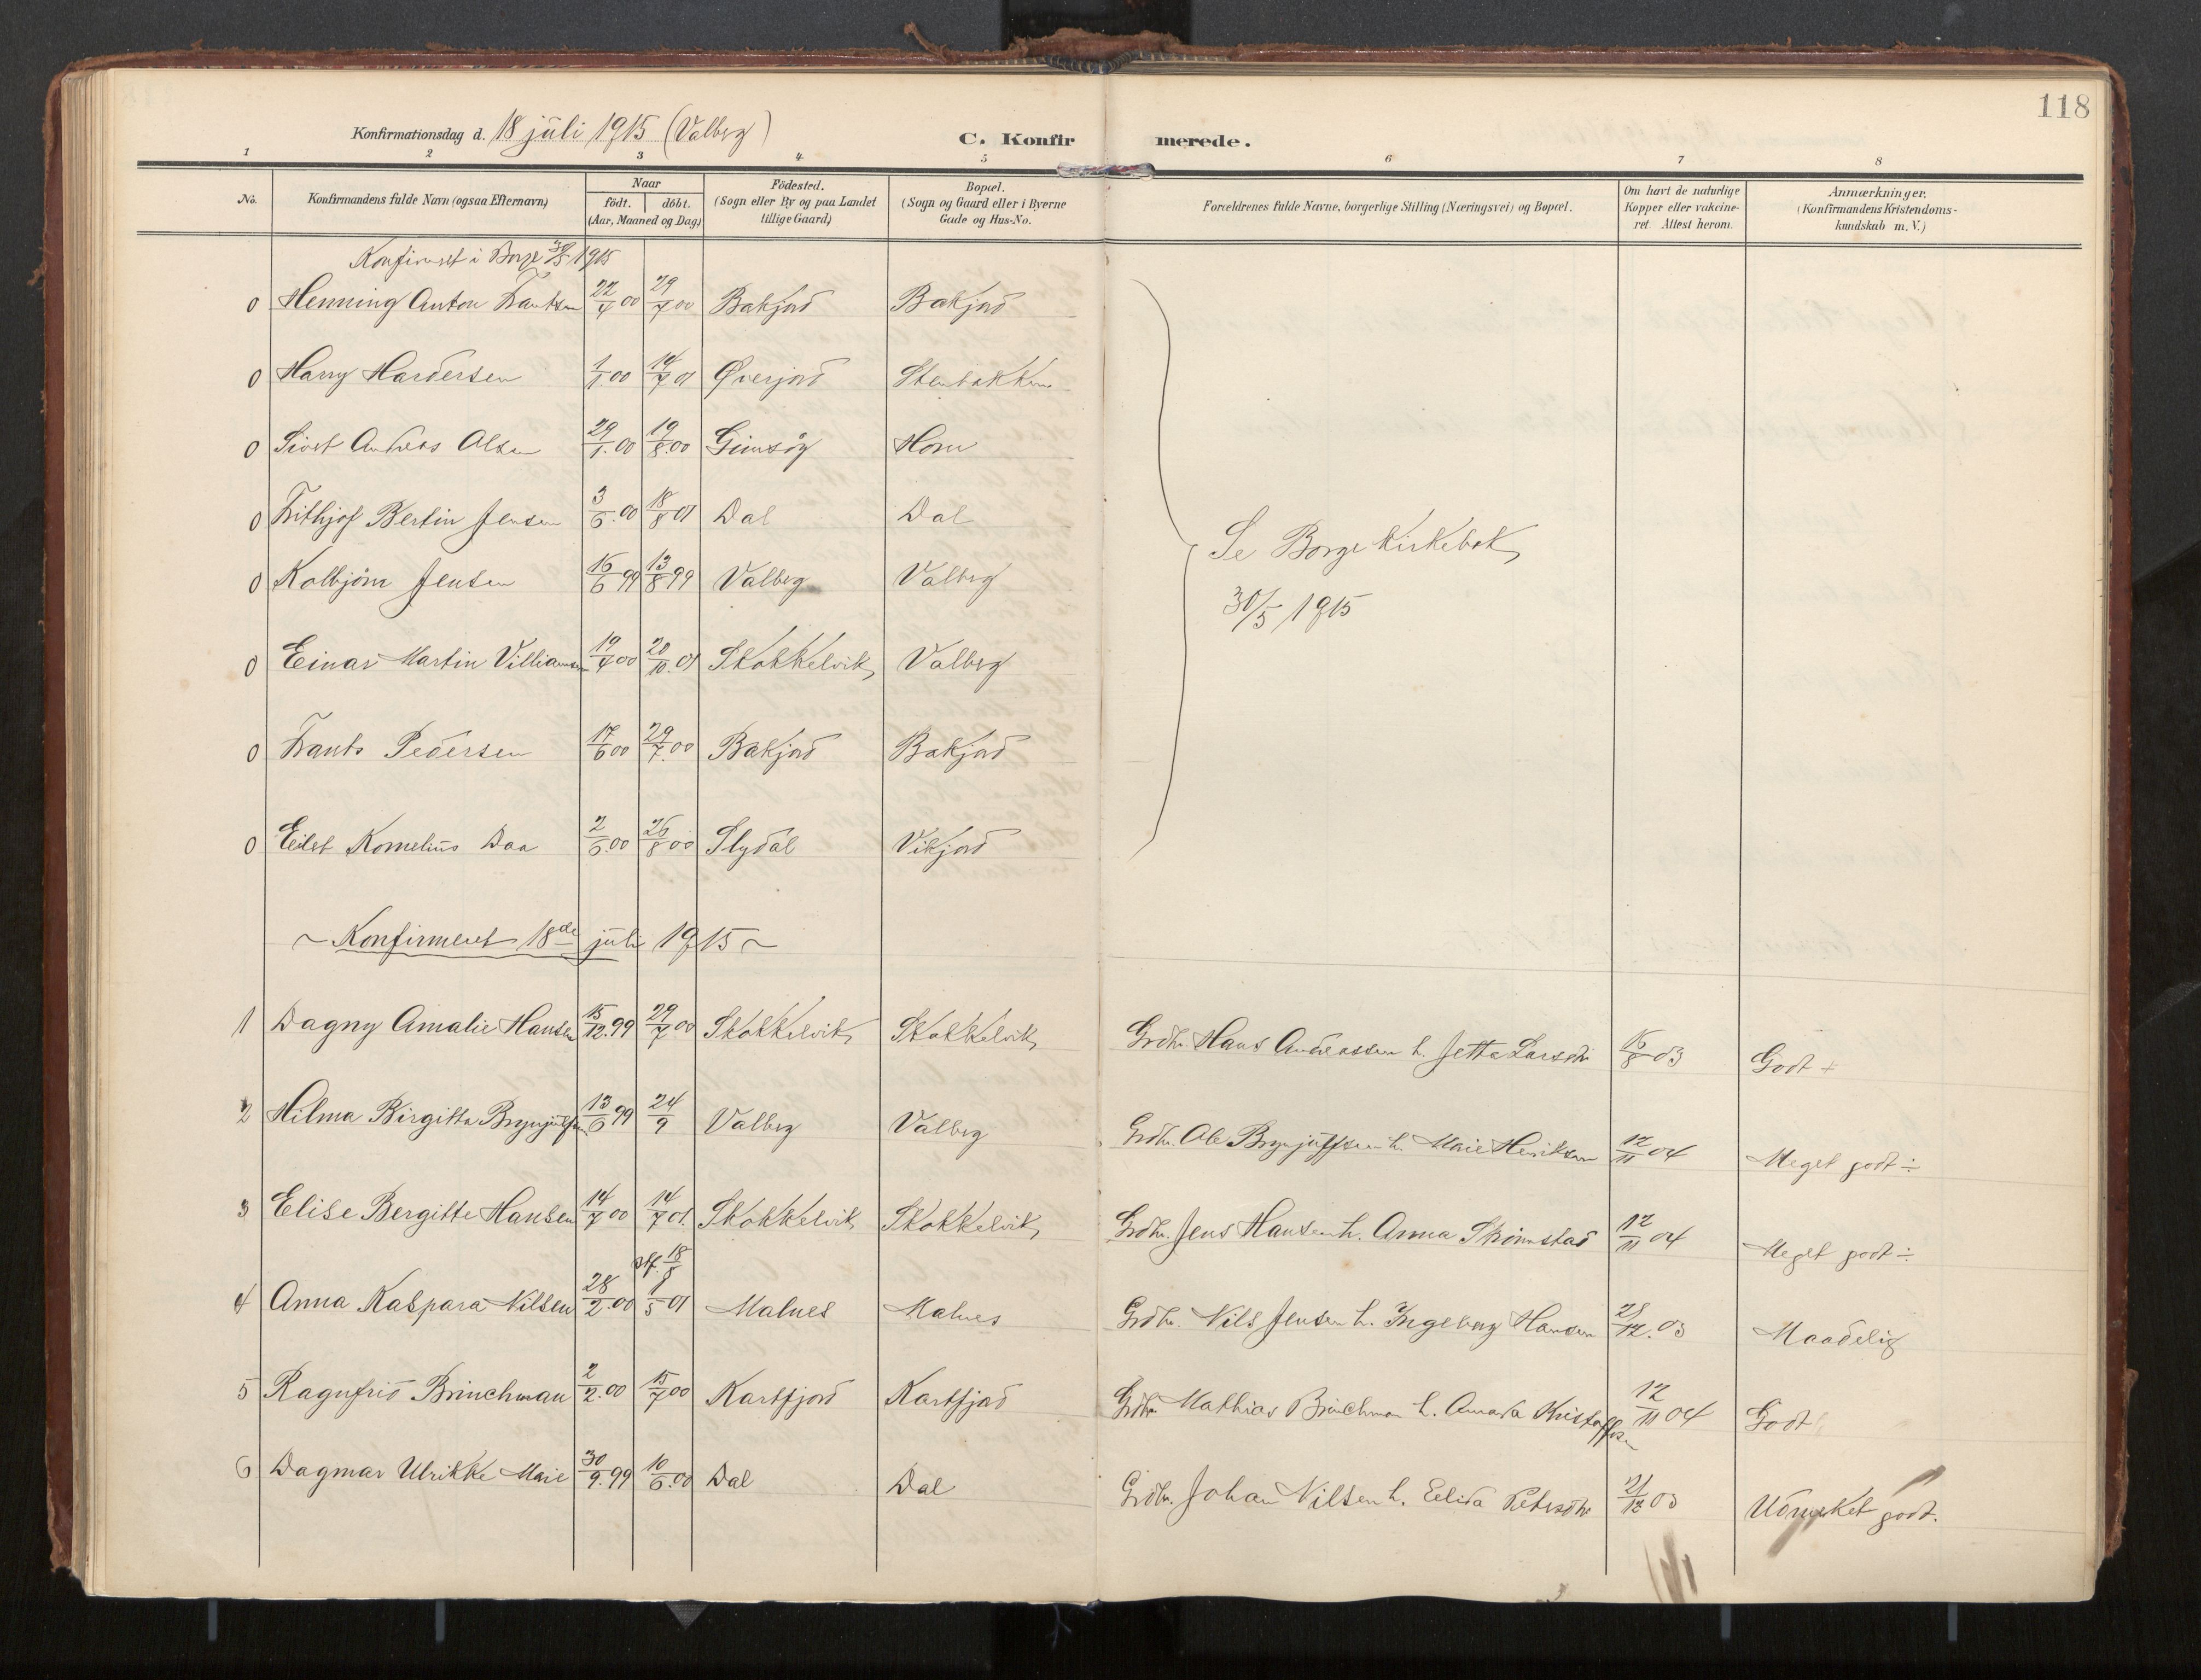 118
Konfirmationsdag d. 18 juli 1915 (Valberg)
C. Konfirmerede.
1 2 3 4 5 6 7 8
No.
Konfirmandens fulde Navn (ogsaa Efternavn)
Naar
födt. döbt.
(Aar, Maaned og Dag)
Födested.
(Sogn eller By og paa Landet
tillige Gaard)
Bopæl.
(Sogn og Gaard eller i Byerne
Gade og Hus-No.
Forældrenes fulde Navne, borgerlige Stilling (Næringsvei) og Bopæl.
Om havt de naturlige
Kopper eller vakcine-
ret. Attest herom.
Anmærkninger.
(Konfirmandens Kristendoms-
kundskab m. V.)
Konfirmeret i Borge 30/5 1915
0 Henning Anton Frantsen 22/4 00 29/7 00 Bakjord Bakjord
0 Harry Hardersen 1/1.00 14/7 01 Øverjord Stenbakken
0 Sivert Andreas Olsen 29/1.00 19/8.00 Gimsöy Horn
0 Frithjof Bertin Jensen 3/6.00 18/8 01 Dal Dal
0 Kolbjörn Jensen 16/6 99 13/8 99 Valberg Valberg
0 Einar Martin Villiamsen 19/4 00 20/10.01 Skokkelvik Valberg
0 Frants Pedersen 17/6 00 29/7.00 Bakjord Bakjord
0 Eilet Kornelius Daa 2/6.00 26/8 00 Slydal Vikjord
Se Borge Kirkebok
30/5 1915
~ Konfirmeret 18de juli 1915 ~
1 Dagny Amalie Hansen 15/12.99 29/7 00 Skokkelvik Skokkelvik Grdbr. Hans Andreassen h. Jetta Larsdtr 15/8 03 Godt +
2 Hilma Birgitta Brynjulfsen 13/6 99 24/9 Valberg Valberg Grdbr. Ole Brynjulfsen h. Marie Henriksen 12/11 04 Meget godt ÷
3 Elise Bergitte Hansen 14/7 00 14/7 01. Skokkelvik Skokkelvik Grdbr. Jens Hansen h. Anna Skömstad 12/11 04 Meget godt ÷
stf. 18/8
4 Anna Kaspara Nilsen 28/2.00 1/5 01 Malnes Malnes Grdbr. Nils Jensen h. Ingeborg Hansen 28/12.03 Maadelig
5 Ragnfrid Brinchman 2/2.00 15/7 00 Kartfjord Kartfjord Grdbr Mathias Brinchman h. Amanda Kristoffersen 12/11 04 Godt
6 Dagmar Ulrikke Marie 30/9.99 10/6.00 Dal Dal Grdbr. Johan Nilsen h. Elida Petersdtr 21/12 03 Udmerket godt.